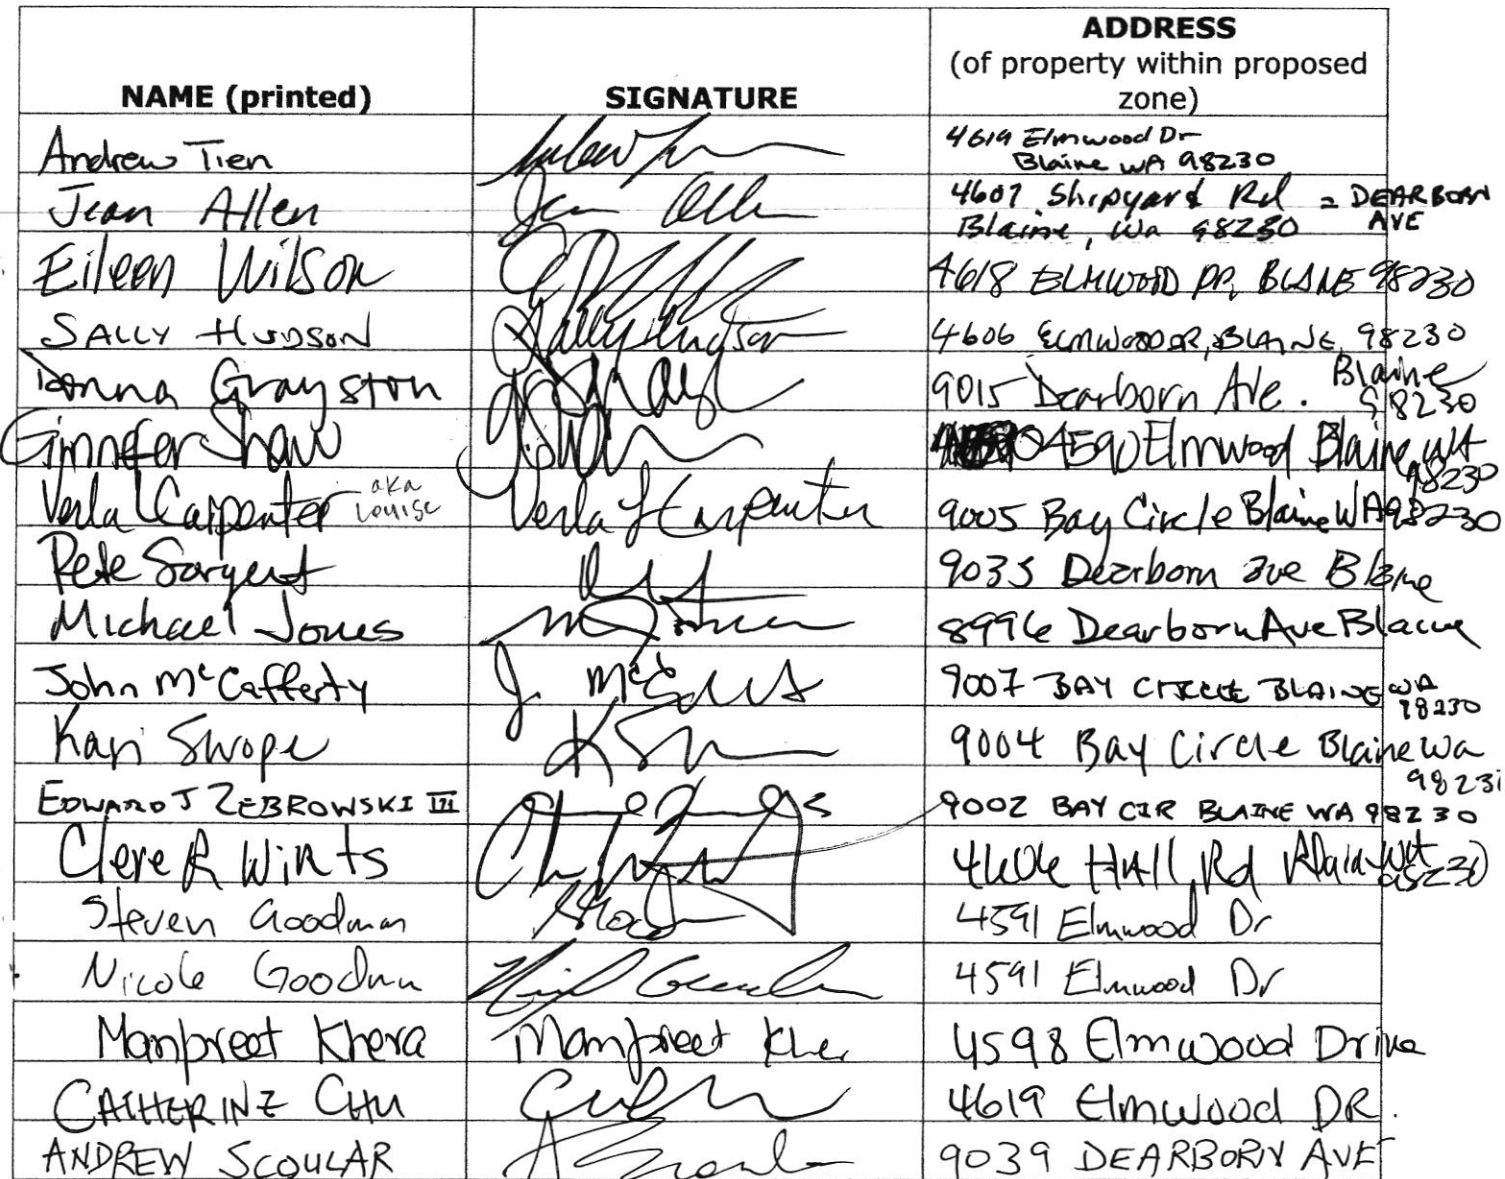 NAME (printed) SIGNATURE ADDRESS
(of property within proposed
zone)
Andrew Tien 4619 Elmwood Dr
Blaine WA 98230
Jean Allen Jean Allen 4607 Shipyard Rd = DEARBORN
AVE
Blaine, Wa 98230
Eileen Wilson 4618 ELMWOOD DR, BLAINE 98230
SALLY HUDSON Sally Hudson 4606 ELMWOOD DR, BLAINE, 98230
Donna Grayston 9015 Dearborn Ave. Blaine
98230
Ginnefer Shaw 4590 Elmwood Blaine, WA
98230
Verla L Carpenter aka
Louise Verla L Carpenter 9005 Bay Circle Blaine WA 98230
Pete Sargent 9035 Dearborn ave Blaine
Michael Jones 8996 Dearborn Ave Blaine
John McCafferty 9007 BAY CIRCLE BLAINE WA
98230
Kari Swope 9004 Bay Circle Blaine Wa
9823i
EDWARD J ZEBROWSKI III 9002 BAY CIR BLAINE WA 98230
Cleve R Wirts Hall Rd Blaine WA
98230
Steven Goodman 4591 Elmwood Dr
Nicole Goodman 4591 Elmwood Dr
Manpreet Khera Manpreet Kher 4598 Elmwood Drive
CATHERINE CHU 4619 Elmwood DR.
ANDREW SCOULAR 9039 DEARBORN AVE